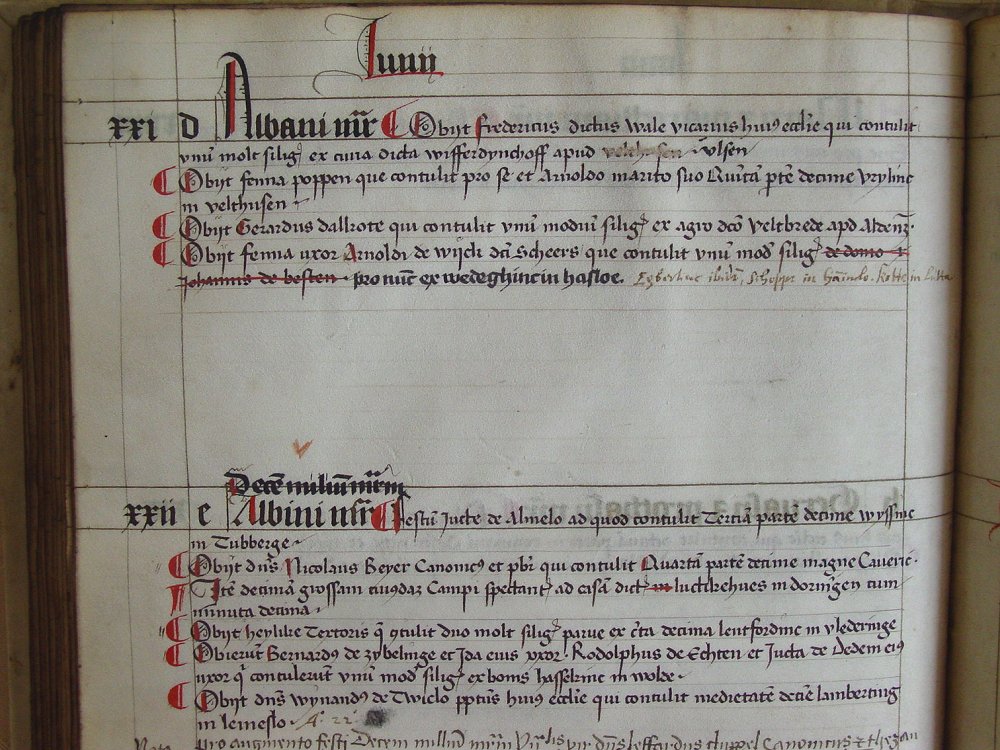 Junij
xxi d Albani mr̄ Obijt Fredericus dictus Wale vicarius huius ecclīe qui contulit
vnū molt siliḡ ex curia dicta wifferdynchoff apud velthusen vlsen
Obijt fenna poppen que contulit pro se et Arnoldo marito suo Quītā ptē decime
in velthusen
Obijt Gerardus dalrote qui contulit vnū modiū siliḡ ex agro dcō veltbrede apd
Obijt fenna uxor Arnoldi de wijck dcī Scheers que contulit vnū mod siliḡ de domo
Johannis de besten pro nunc ex wedeghinc in hasloe. Egbertinc
Decē miliū mrm
xxii e Albini mr̄ festū Jutte de Almelo ad quod contulit Terciā partē decime wyssinc
in Tubberge
Obijt dn̄s Nicolaus Beyer Canonicꝰ et pb̄r qui contulit Quartā partē decime magne
Itē decimā grossam eiusdaz Campi spectant ad casā dict luctikehues in doringen cum
minuta decima
Obijt heylike Textoris q̄ ꝯtulit duo molt siliḡ parue ex c̄ta decima lentfordinc in vlederinge
Obierūt Bernardꝰ de zybelinge et Ida eius vxor. Rodolphus de Echten et Jutta de Dedem eiꝰ
uxor q̄ contulerūt vnū mod siliḡ ex bonis hasselrinc in wolde
Obijt dn̄s wynandꝰ de Twiclo pptūs huiꝰ ecclīe qui contulit medietatē decīe lamberting
in lemeslo A. 22
Nota pro augmento festi Decem milliū mr̄m